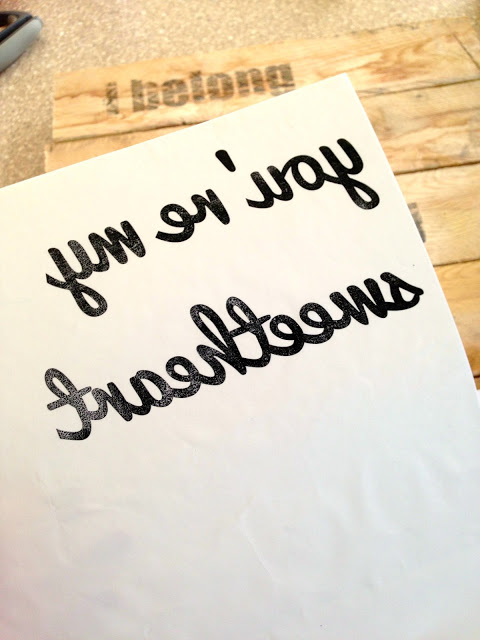 I belong
you're my
sweetheart